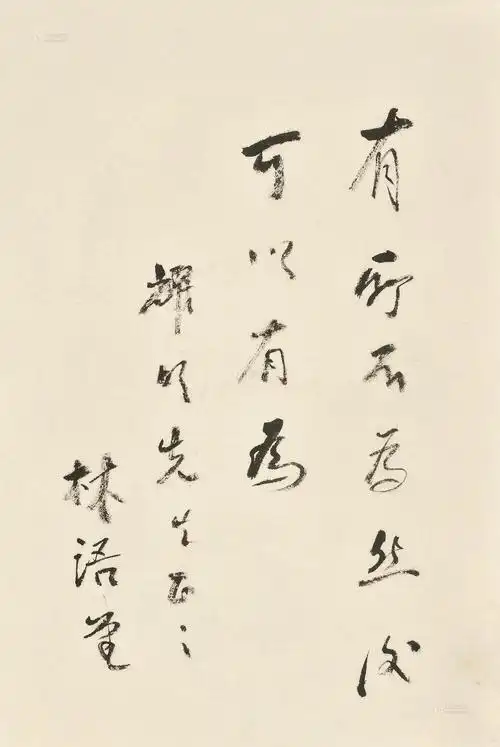 有所不為然後
可以有為
耀明先生正之
林語堂